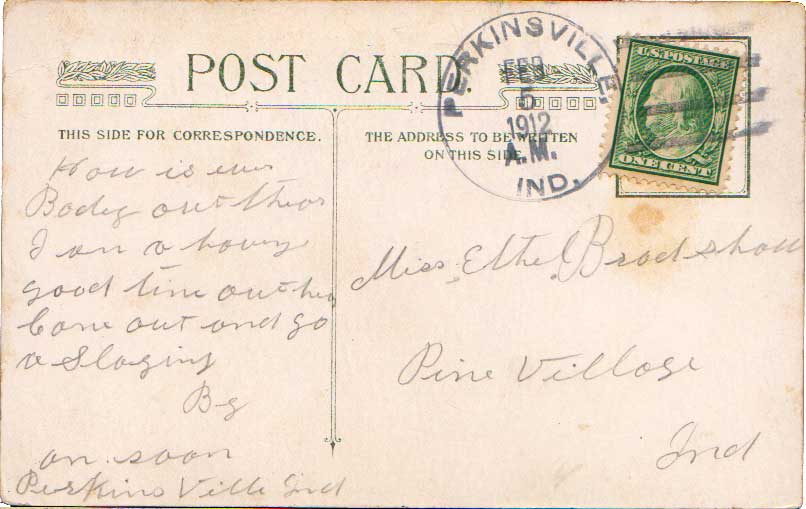 POST CARD.
THIS SIDE FOR CORRESPONDENCE.
THE ADDRESS TO BE WRITTEN
ON THIS SIDE
PERKINSVILLE,
FEB
5
1912
A.M.
IND.
U.S. POSTAGE
ONE CENT
How is ever
Body out thear
I am a having
good time out her
Come out and go
a Slaging
By
an soon
Perkins Ville Ind
Miss Ethel Bradshaw
Pine Village
Ind